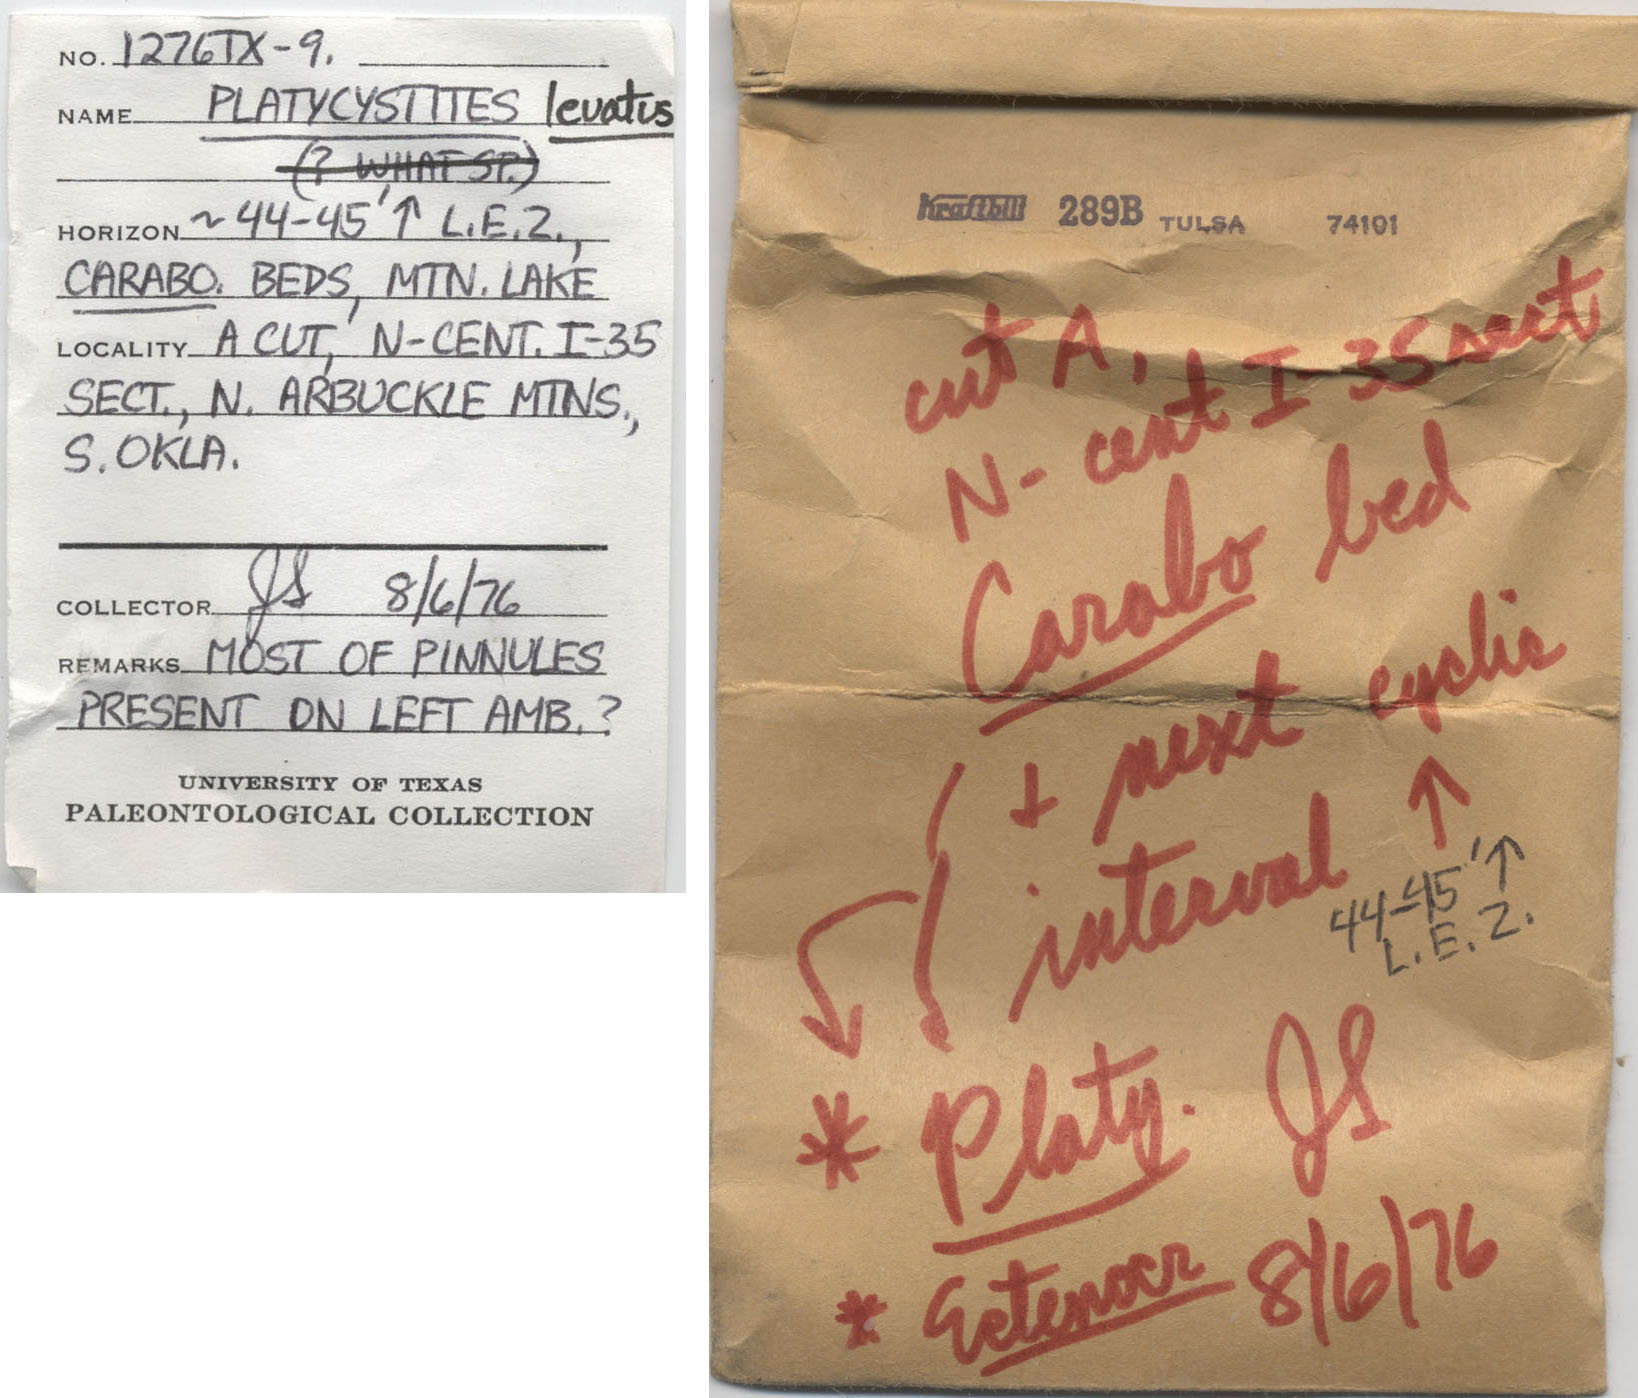 NO. 1276TX-9.
NAME PLATYCYSTITES levatus
(? WHAT SP.)
HORIZON ~44-45'↑ L.E.Z.,
CARABO. BEDS, MTN. LAKE
LOCALITY A CUT, N-CENT. I-35
SECT., N. ARBUCKLE MTNS.,
S. OKLA.
COLLECTOR JS 8/6/76
REMARKS MOST OF PINNULES
PRESENT ON LEFT AMB.?
UNIVERSITY OF TEXAS
PALEONTOLOGICAL COLLECTION
Kraftbilt 289B TULSA 74101
cut A,
N-cent I-35 sect
Carabo bed
+ next cyclic
interval ↑
44-45'↑
L.E.Z.
* Platy. JS
* Ectenocr 8/6/76